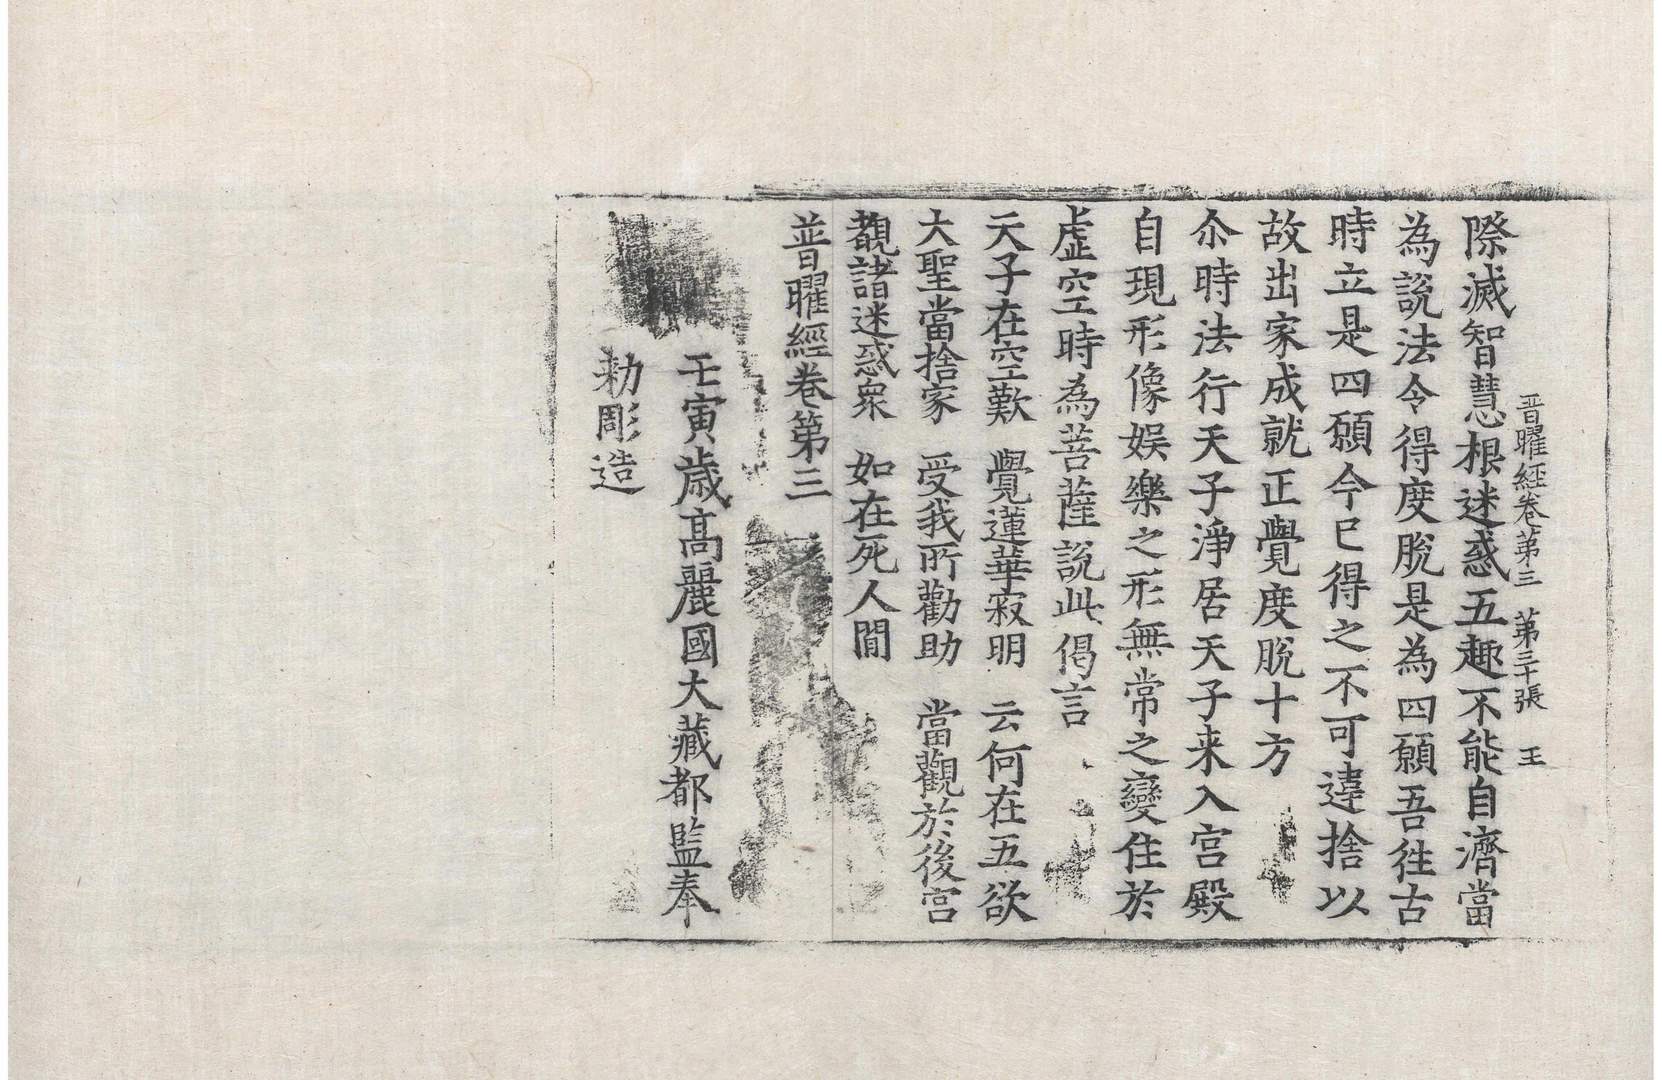 普曜經卷第三　第三十張　王
際滅智慧根迷惑五趣不能自濟當
為說法令得度脫是為四願吾徃古
時立是四願今已得之不可違捨以
故出家成就正覺度脫十方
尒時法行天子淨居天子来入宮殿
自現形像娛樂之形無常之變住於
虛空時為菩薩說此偈言
天子在空歎　覺蓮華寂明　云何在五欲
大聖當捨家　受我所勸助　當觀於後宮
觀諸迷惑衆　如在死人間
普曜經卷第三
壬寅歲高麗國大藏都監奉
勅彫造